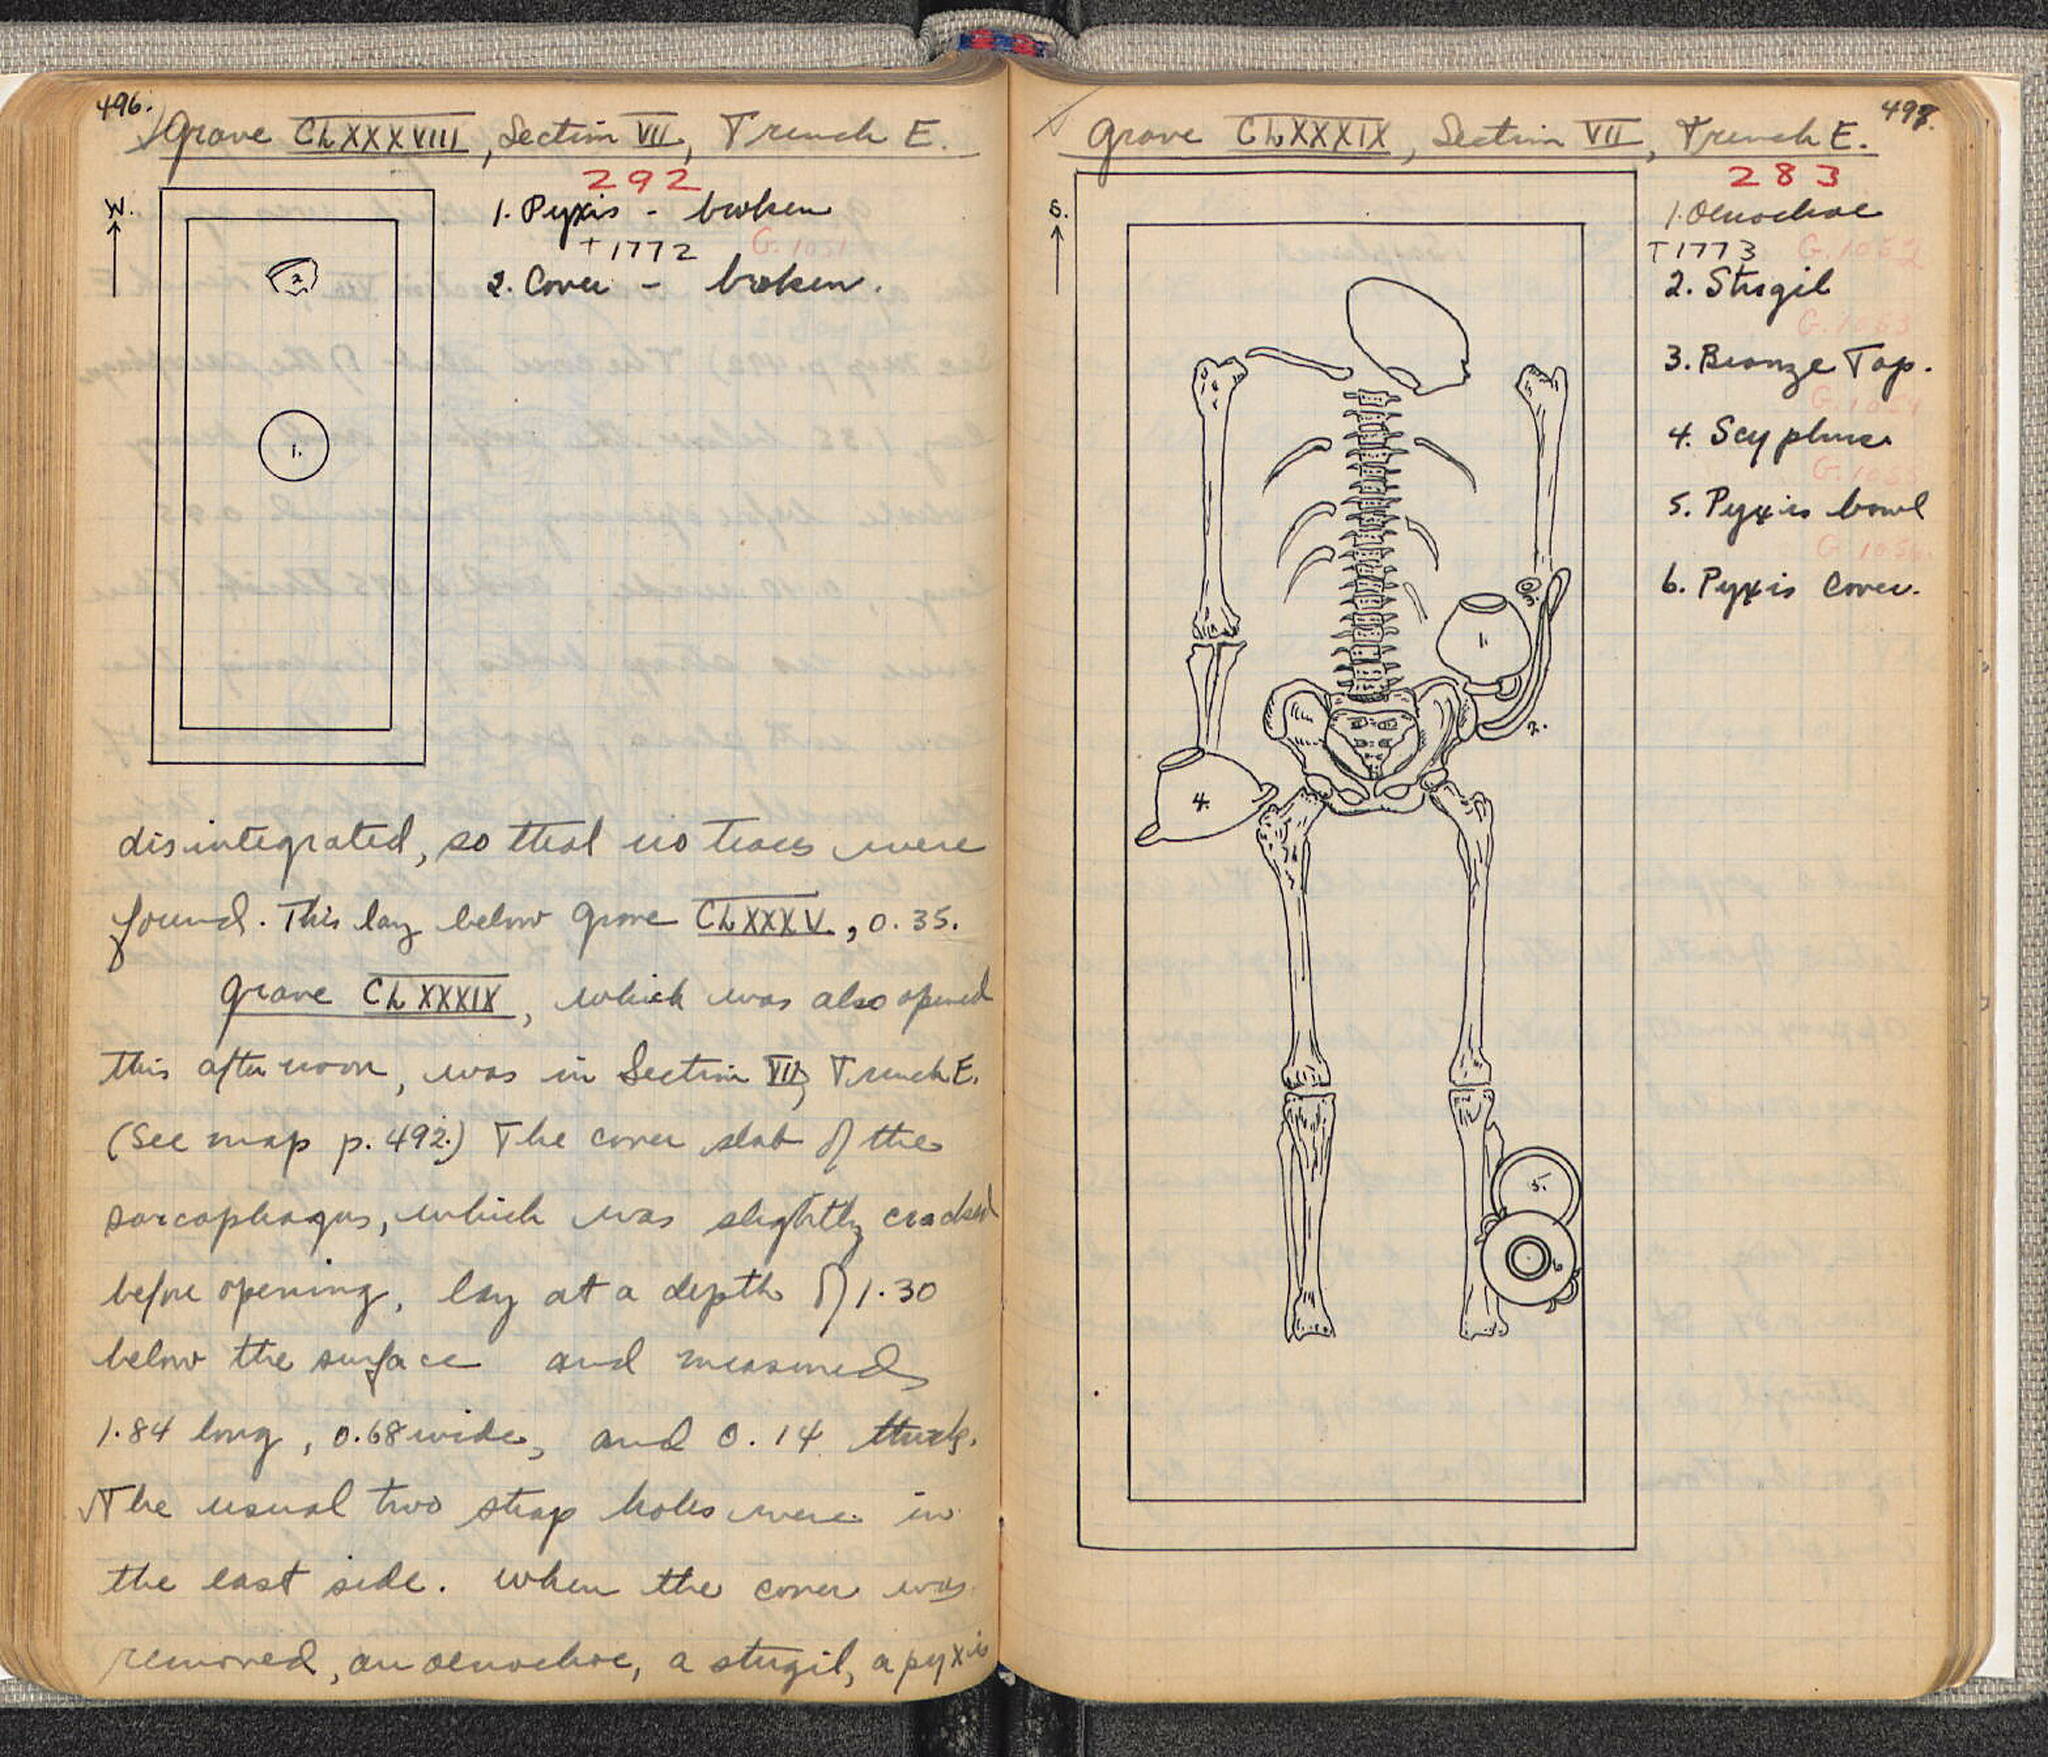 496.
Grave CLXXXVIII, Section VII, Trench E.
W.
292
1. Pyxis - broken
T1772 G.1051
2. Cover - broken.
2
1.
disintegrated, so that no traces were
found. This lay below grave CLXXXV, 0.35.
Grave CLXXXIX, which was also opened
this afternoon, was in Section VII, Trench E.
(See map p. 492.) The cover slab of the
sarcophagus, which was slightly cracked
before opening, lay at a depth of 1.30
below the surface and measured
1.84 long, 0.68 wide, and 0.14 thick.
The usual two strap holes were in
the east side. When the cover was
removed, an oenochoe, a strigil, a pyxis
497.
Grave CLXXXIX, Section VII, Trench E.
S.
283
1. Oenochoe
T1773 G.1052
2. Strigil
G.1053
3. Bronze Top.
G.1054
4. Scyphus
G.1055
5. Pyxis bowl
G.1056
6. Pyxis Cover.
3.
1.
2.
4.
5.
6